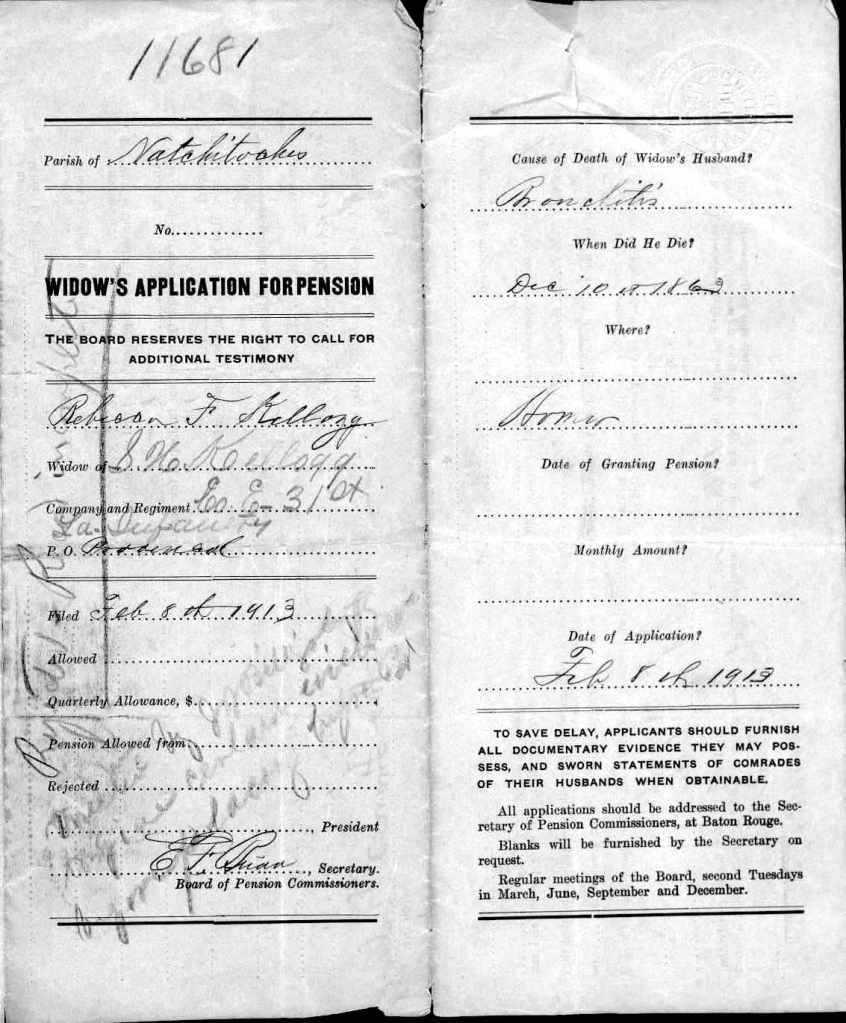 11681
Parish of Natchitoches
No.
WIDOW'S APPLICATION FOR PENSION
THE BOARD RESERVES THE RIGHT TO CALL FOR
ADDITIONAL TESTIMONY
Rebecca F Kellogg
Widow of S H Kellogg
Company and Regiment Co E - 31st
La Infantry
P. O.
Filed Feb 8th 1913
Allowed
Quarterly Allowance, $
Pension Allowed from
Rejected
, President
, Secretary.
Board of Pension Commissioners.
Cause of Death of Widow's Husband?
Bronchitis
When Did He Die?
Dec 10th 1863
Where?
Homer
Date of Granting Pension?
Monthly Amount?
Date of Application?
Feb 8th 1913
TO SAVE DELAY, APPLICANTS SHOULD FURNISH
ALL DOCUMENTARY EVIDENCE THEY MAY POS-
SESS, AND SWORN STATEMENTS OF COMRADES
OF THEIR HUSBANDS WHEN OBTAINABLE.
All applications should be addressed to the Sec-
retary of Pension Commissioners, at Baton Rouge.
Blanks will be furnished by the Secretary on
request.
Regular meetings of the Board, second Tuesdays
in March, June, September and December.